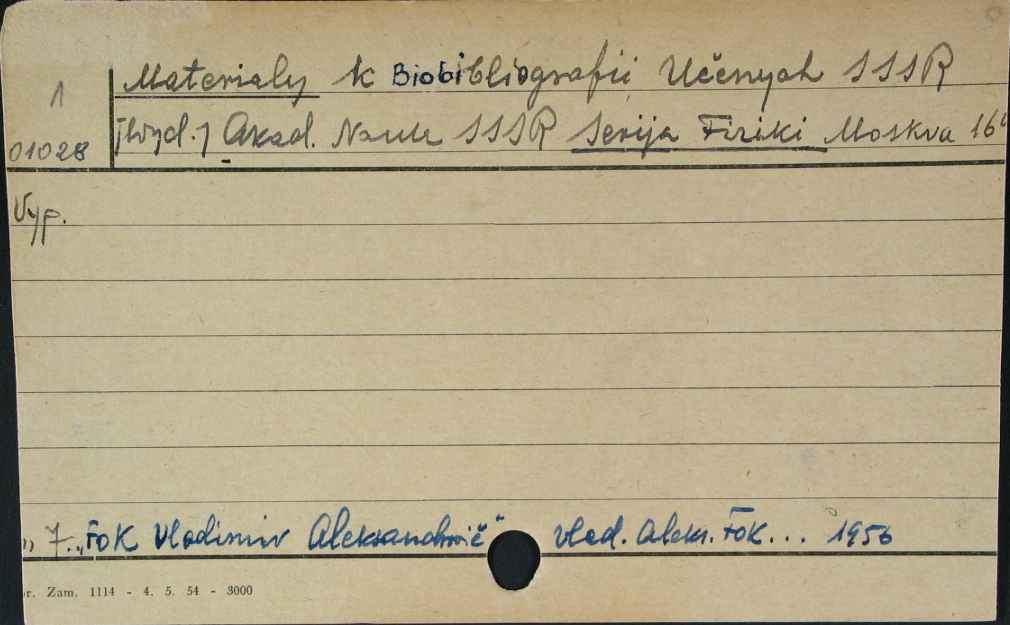 1 Materialy k Biobibliografii Učenych SSSR
01028 [Wyd.] Akad. Nauk SSSR Serija Fiziki Moskva 16°
Vyp.
" 7. „Fok Vladimir Aleksandrovič" Vlad. Aleks. Fok... 1956
r. Zam. 1114 - 4. 5. 54 - 3000